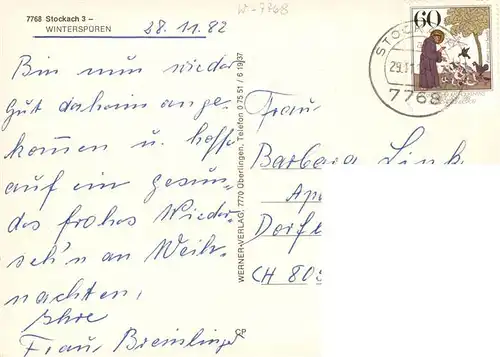 7768 Stockach 3 –
WINTERSPOREN
28.11.82
W-7768
Bin nun wieder
gut daheim ange-
kommen u. hoffe
auf ein gesun-
des frohes Wieder-
seh'n an Weih-
nachten,
Ihre
Frau Breinlinger
WERNER-VERLAG, 7770 Überlingen, Telefon 0 75 51 / 6 19 37
CP
60
STOCKA
29.11
7768
Frau
Barbara Link
Ap
Dorf
CH 805